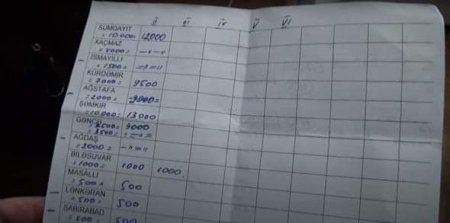 II III IV V VI
SUMQAYIT
=10.000= 12000
XAÇMAZ
=4000= —"—"
İSMAYILLI
=1500= —"—"
KÜRDƏMİR
=7000= 9500
AĞSTAFA
=2000= 3000=
ŞƏMKİR
=10.000= 13000
GƏNCƏ
=8500= 9000
=3500= —"—"
AĞDAŞ
=2000= —"—"
BİLƏSUVAR
=1000= 1000 1000
MASALLI
=500= 500
LƏNKƏRAN
=500= 500
SABİRABAD
500